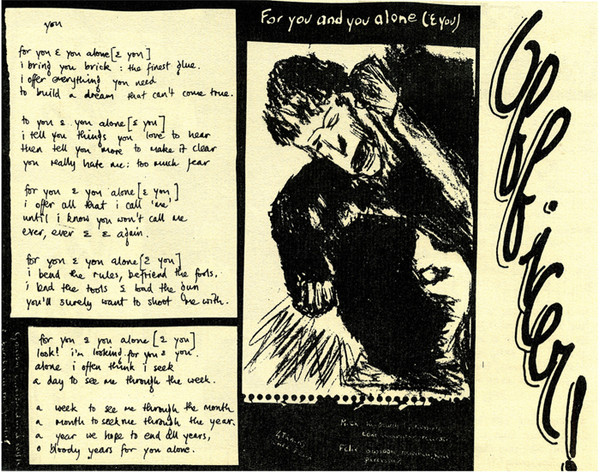 you
for you & you alone [& you]
i bring you brick : the finest glue.
i offer everything you need
to build a dream that can't come true.
to you & you alone [& you]
i tell you things you love to hear
then tell you more to make it clear
you really hate me: too much fear
for you & you alone [& you]
i offer all that i call 'me',
until i know you won't call me
ever, ever & & again.
for you & you alone [& you]
i bend the rules, befriend the fools.
i lend the tools & load the gun
you'll surely want to shoot me with.
for you & you alone [& you]
look! i'm looking for you & you.
alone i often think i seek
a day to see me through the week.
a week to see me through the month
a month to seek me through the year.
a year we hope to end all years,
o bloody years for you alone.
For you and you alone (& you)
Officer!